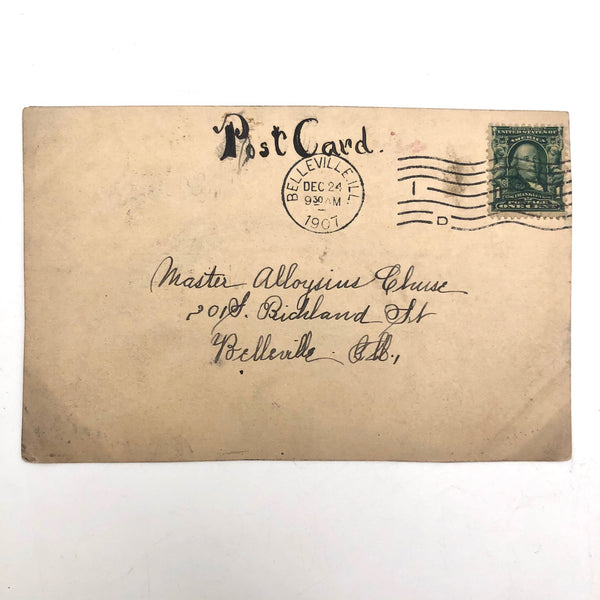 Post Card.
BELLEVILLE, ILL.
DEC 24
9 30 AM
1907
1
D
UNITED STATES OF AMERICA
1 1
POSTAGE
ONE CENT
Master Alloysius Chuse
201 S. Richland St
Belleville. Ill.,